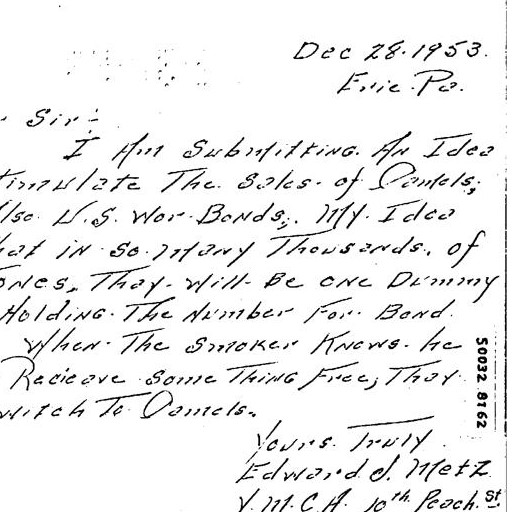 Dec 28. 1953.
Erie. Pa.
Sir:-
I Am Submitting. An Idea
timulate The. Sales. of Camels,
lso. U.S. War. Bonds,. My. Idea
hat in so. Many Thousands. of
ones. Thay. Will. Be one Dummy
Holding. The Number For. Bond.
When. The smoker Knows. he
Recieave Some Thing Free, Thay.
witch To Camels.
Yours. Truly.
Edward. J. Metz
Y.M.C.A. 10th. Peach. St.
50032 8162